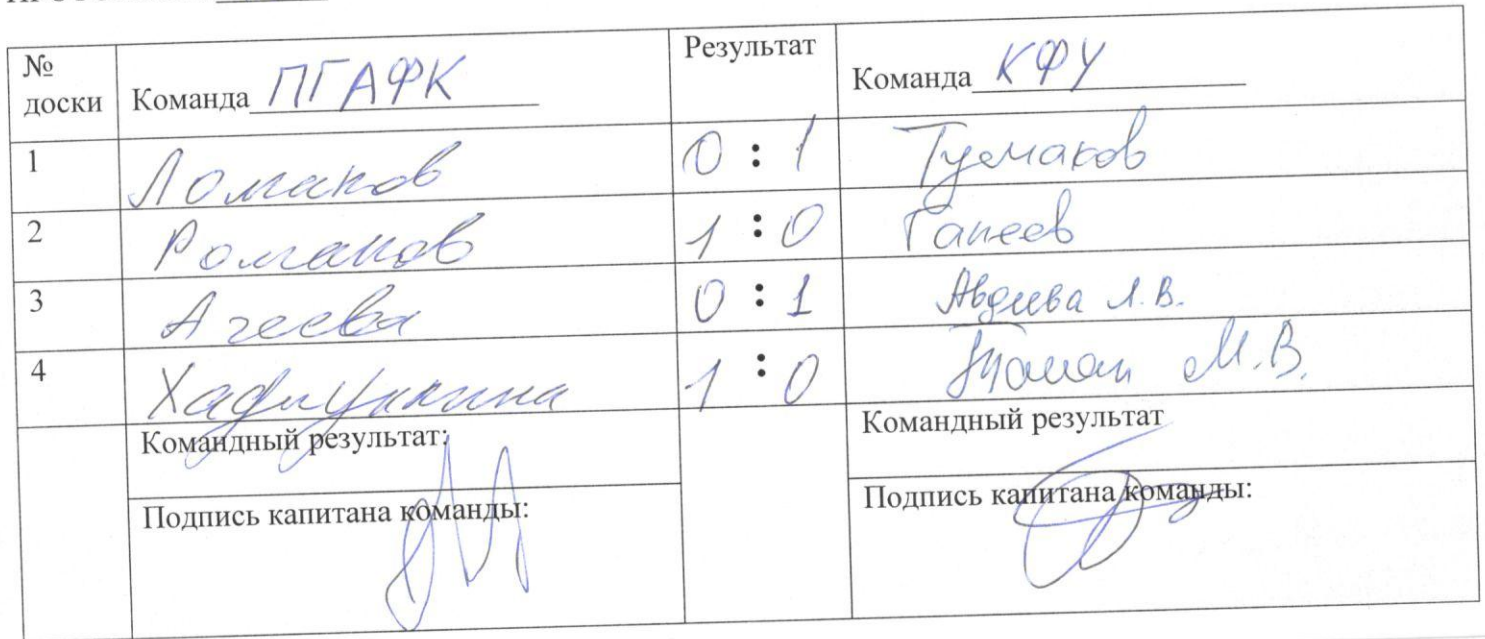 № доски Команда ПГАФК Результат Команда КФУ
1 Ломанов 0 : 1 Тумаков
2 Романов 1 : 0 Ганеев
3 Агеева 0 : 1 Авдеева Л.В.
4 1 : 0 М.В.
Командный результат: Командный результат
Подпись капитана команды: Подпись капитана команды: